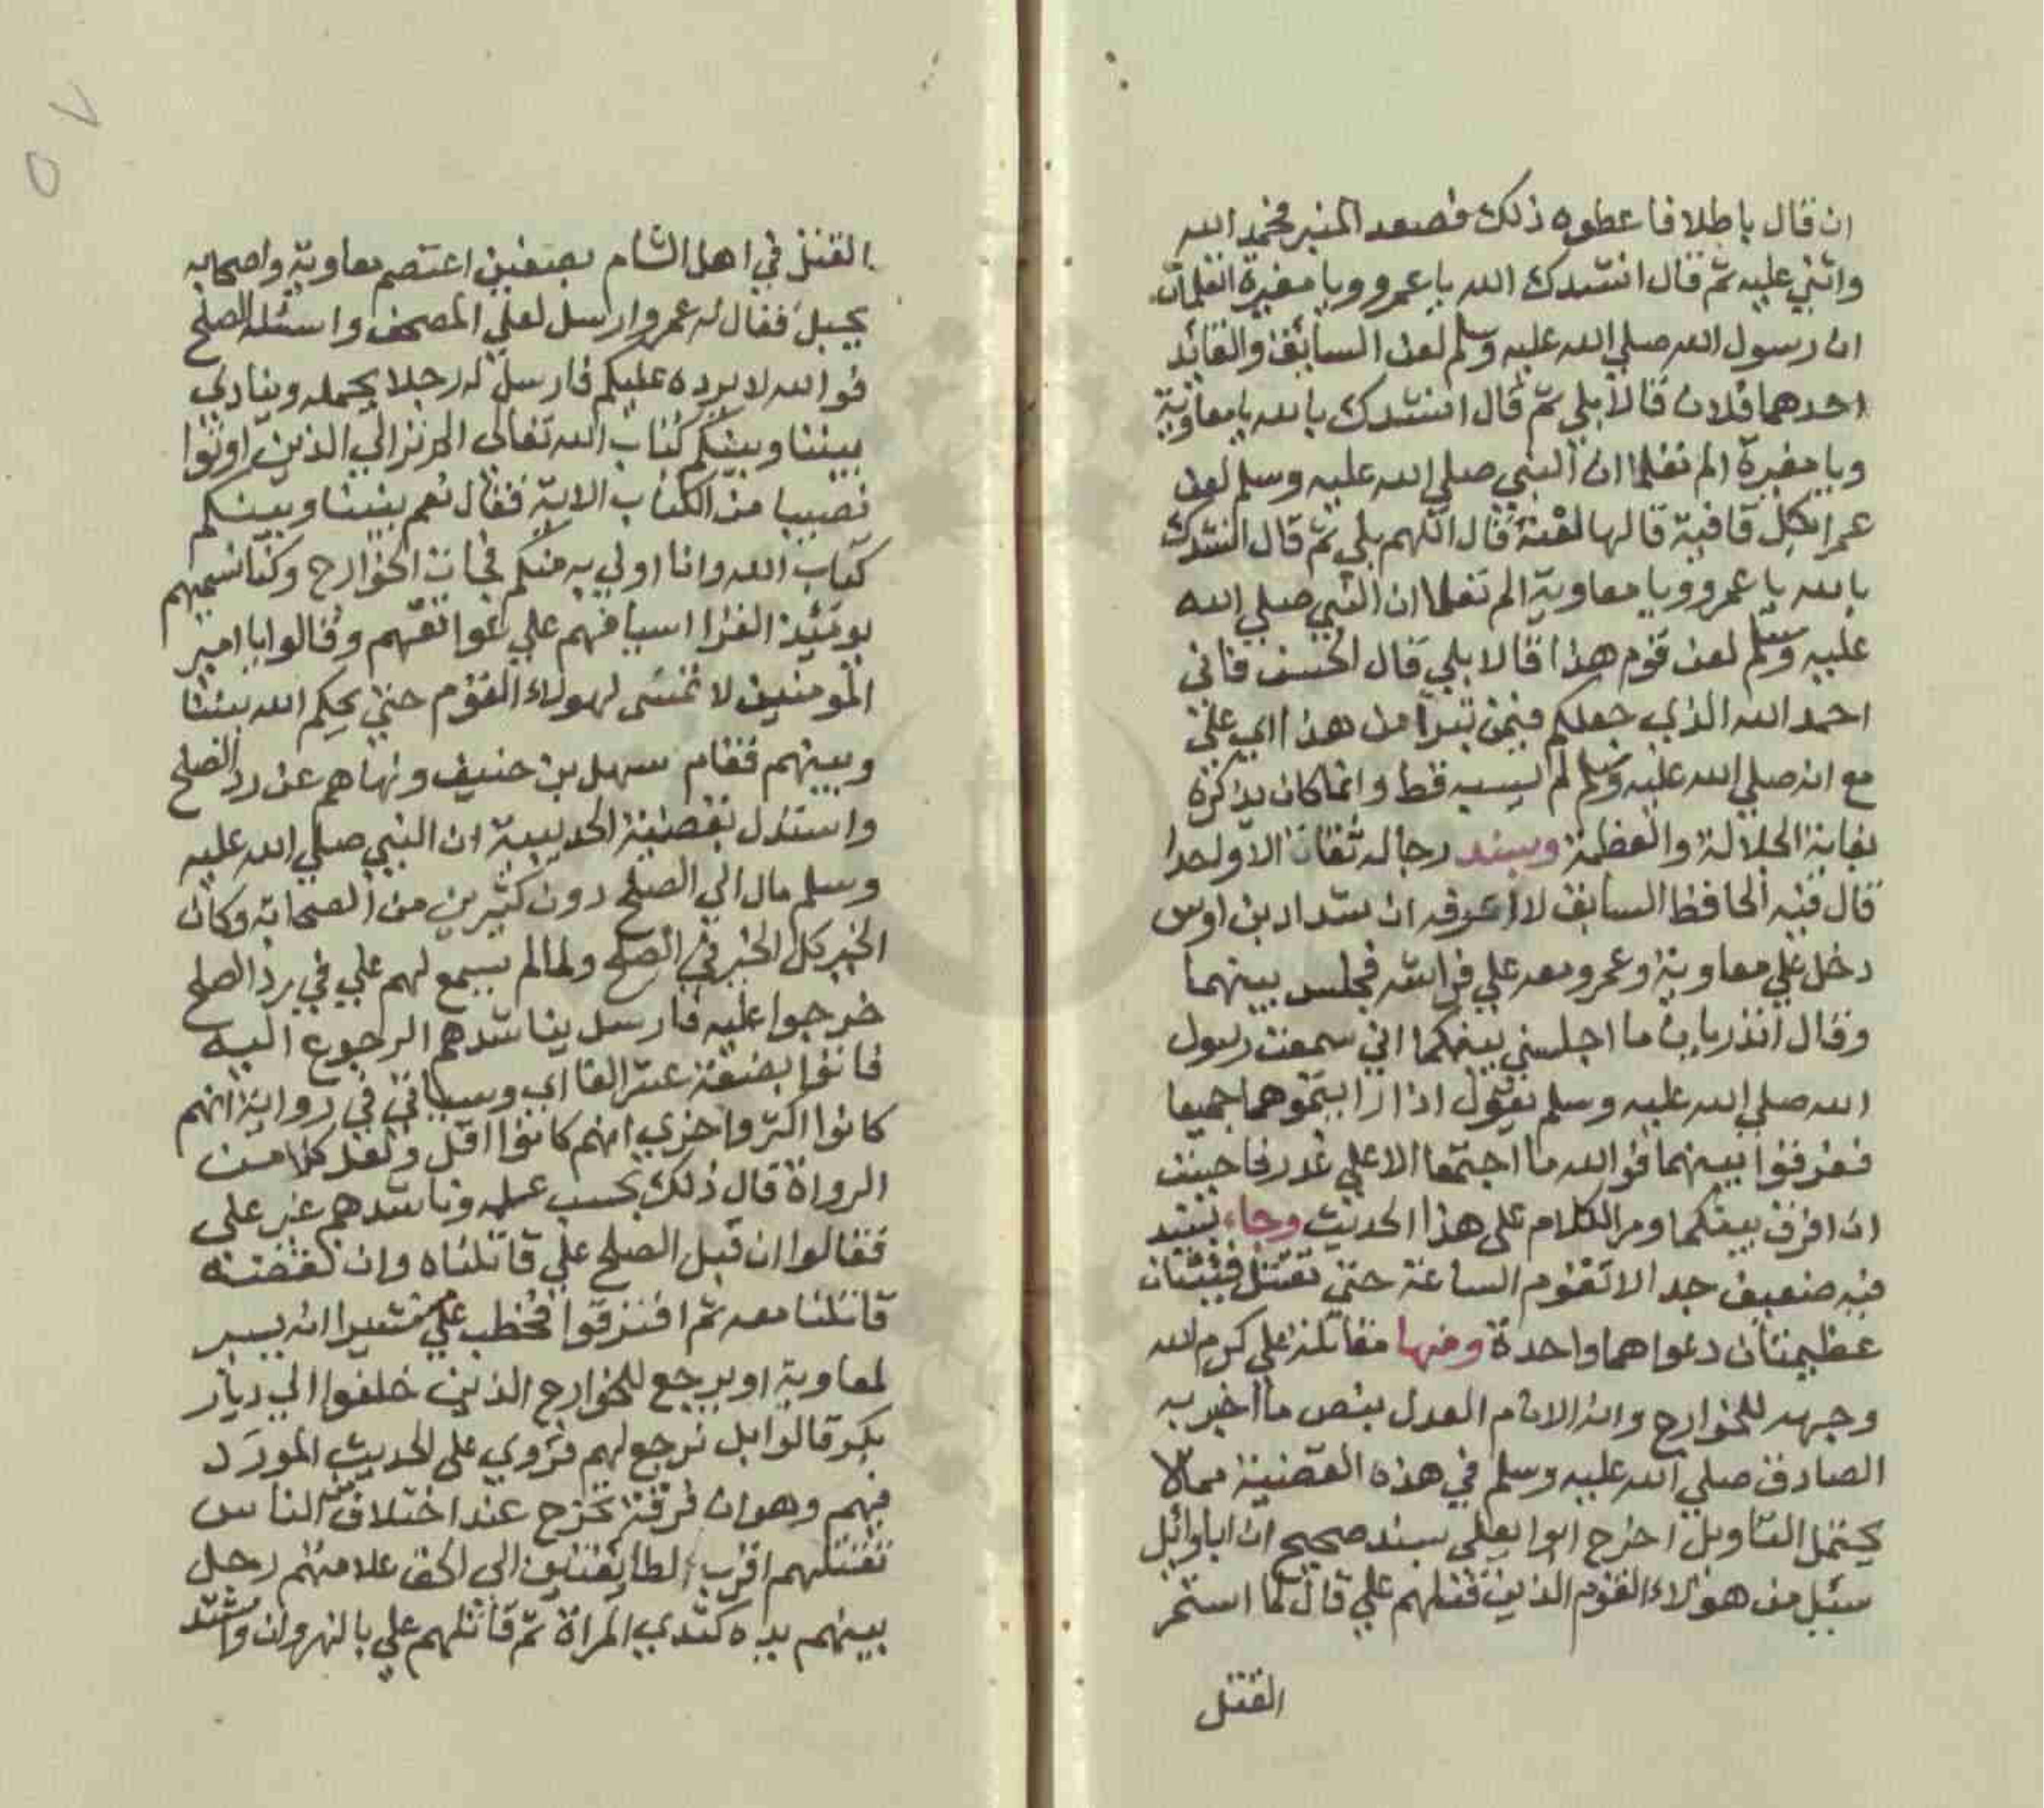 ان قال باطلا فاعطوه ذلك فصعد المنبر فحمد الله
واثني عليه ثم قال انشدك الله يا عمرو ويا مغيرة اتعلمان
ان رسول الله صلي الله عليه وسلم لعن السائق والقائد
احدهما فلان قالا بلي ثم قال انشدك بالله يا معاوية
ويا مغيرة الم تعلما ان النبي صلي الله عليه وسلم لعن
عمرا بكل قافية قالها لعنة قال اللهم بلي ثم قال انشدك
بالله يا عمرو ويا معاوية الم تعلما ان النبي صلي الله
عليه وسلم لعن قوم هذا قالا بلي قال الحسن فاني
احمد الله الذي جعلكم فيمن تبرا من هذا اي علي
مع انه صلي الله عليه وسلم لم يسبه قط وانما كان يذكره
بغاية الجلالة والعظمة وبسند رجاله ثقات الا واحدا
قال فيه الحافظ السابق لا اعرفه ان شداد بن اوس
دخل علي معاوية وعمرو معه علي فراشه فجلس بينهما
وقال اتدريان ما اجلسني بينكما اني سمعت رسول
الله صلي الله عليه وسلم يقول اذا رايتموهما جميعا
ففرقوا بينهما فوالله ما اجتمعا الا علي غدر فاحببت
ان افرق بينكما ومر الكلام على هذا الحديث وجاء بسند
فيه ضعيف جدا لا تقوم الساعة حتي تقتتل فئتان
عظيمتان دعواهما واحدة ومنها مقاتلة علي كرم الله
وجهه للخوارج وانه الامام العدل بنص ما اخبر به
الصادق صلي الله عليه وسلم في هذه القضية مما لا
يحتمل التاويل اخرج ابوا يعلى بسند صحيح ان ابا وائل
سئيل من هولاء القوم الذين قتلهم علي قال لما استحر
القتل
القتل في اهل الشام بصفين اعتصم معاوية واصحابه
بجبل فقال له عمرو ارسل لعلي المصحف واسئله الصلح
فوالله لا يرده عليكم فارسل له رجلا يحمله وينادي
بيننا وبينكم كتاب الله تعالى الم تر الي الذين اوتوا
نصيبا من الكتاب الاية فقال نعم بيننا وبينكم
كتاب الله وانا اولي به منكم فجات الخوارج وكنا نسميهم
يومئذ القرا اسيافهم علي عواتقهم وقالوا يا امير
المومنين لا نمشى لهولاء القوم حتي يحكم الله بيننا
وبينهم فقام سهل بن حنيف ونهاهم عن رد الصلح
واستدل بقضية الحديبية ان النبي صلي الله عليه
وسلم مال الي الصلح دون كثيرين من الصحابة وكان
الخير كل الخير في الصلح ولما لم يسمع لهم علي في رد الصلح
خرجوا عليه فارسل يناشدهم الرجوع اليه
فاتوا بضعة عشر الفا اي وسياتي في رواية انهم
كانوا اكثر واخري انهم كانوا اقل ولعل كلا من
الرواة قال ذلك بحسب علمه وناشدهم غير علي
فقالوا ان قبل الصلح علي قاتلناه وان نقضته
قاتلنا معه ثم افترقوا فخطب علي مشيرا انه يسير
لمعاوية او يرجع للخوارج الذين خلفوا الي ديار
بكر قالوا بل نرجع لهم فروي على الحديث المورد
فيهم وهو ان فرقة تخرج عند اختلاف من الناس
تقتلهم اقرب الطائفتين الى الحق علامتهم رجل
بينهم يده كثدي المراة ثم قاتلهم علي بالنهروان واشتد